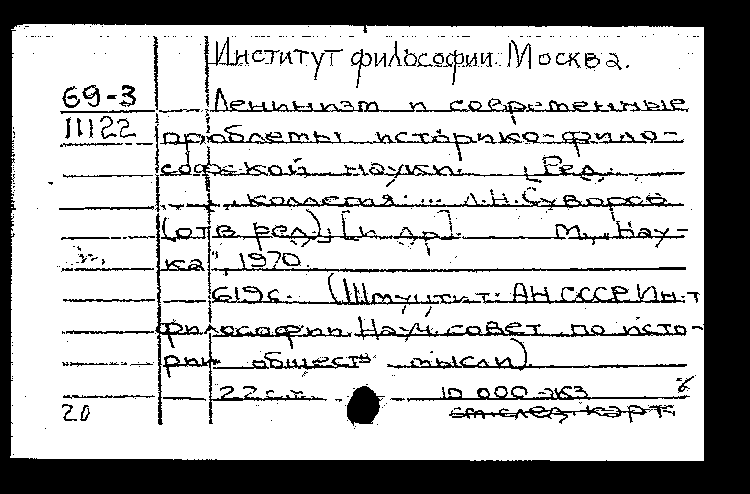 Институт философии. Москва.
69-3
Ленинизм и современные
11122
проблемы историко-фило-
софской науки. [Ред.
коллегия: ... Л.Н. Суворов
(отв. ред.) и др]. М., „Нау-
ка", 1970.
619 с. (Шмуцтит: АН СССР Ин-т
философии. Науч. совет по исто-
рии обществ мысли)
22 см. 10 000 экз
20 см. след. карт.